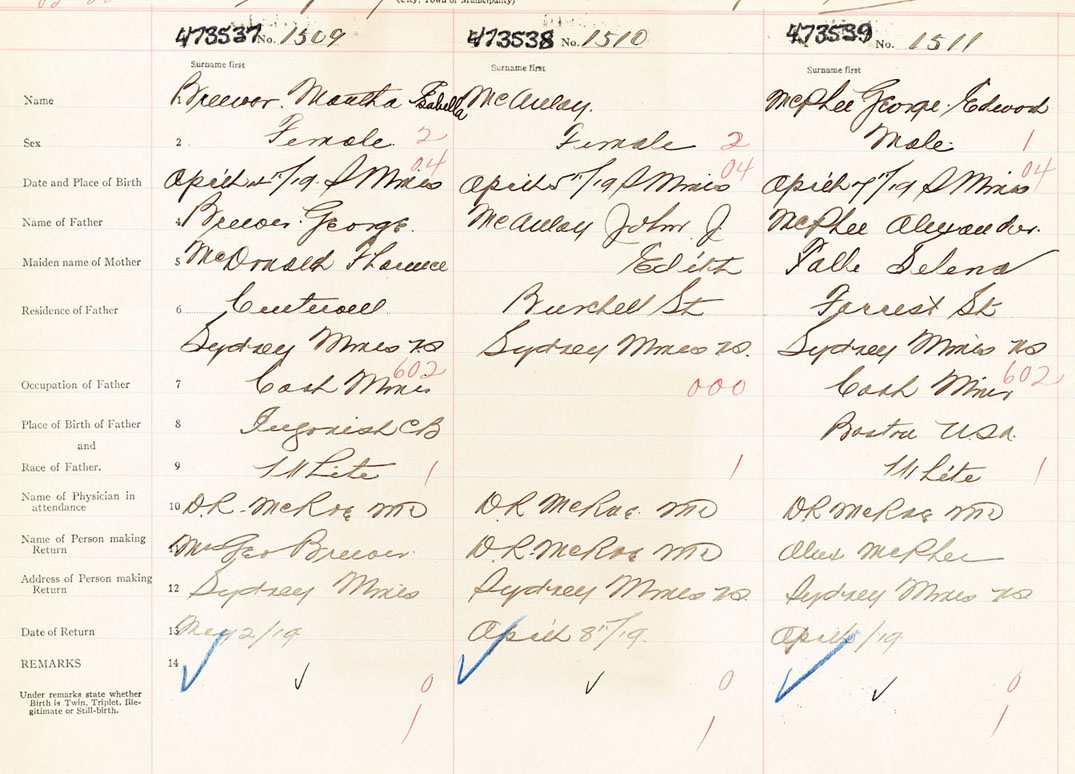 (City, Town or Municipality)
473537 No. 1509 473538 No. 1510 473539 No. 1511
Surname first Surname first Surname first
Name 1 Brewer. Martha Isabella McAulay. McPhee George Edword
Sex 2 Female 2 Female 2 Male 1
Date and Place of Birth April /19 S Mines 04 April 5th/19 S Mines 04 April 7th/19 S Mines 04
Name of Father 4 Brewer George. McAulay John J McPhee Alexander.
Maiden name of Mother 5 McDonald Florence Edith Selena
Residence of Father 6 Burchell St Forrest St
Sydney Mines NS Sydney Mines NS. Sydney Mines NS
Occupation of Father 7 Coal Miner 602 000 Coal Miner 602
Place of Birth of Father 8 Ingonish CB Boston USA.
and
Race of Father. 9 White 1 1 White 1
Name of Physician in
attendance 10 D.R. McRae MD DR McRae. MD DR McRae MD
Name of Person making
Return Mrs Geo Brewer. DR McRae MD Alex McPhee
Address of Person making
Return 12 Sydney Mines Sydney Mines NS. Sydney Mines NS
Date of Return 13 May 2/19 April 8th/19. April /19
REMARKS 14
0 0 0
Under remarks state whether
Birth is Twin, Triplet, Ille-
gitimate or Still-birth.
1 1 1